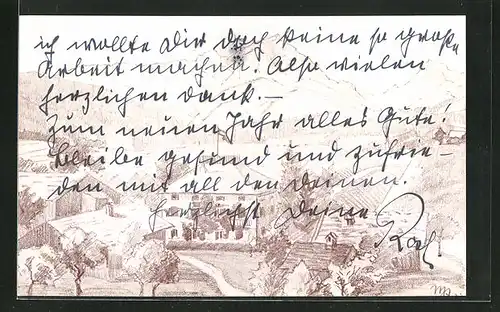 ich wollte Dir doch keine so große
Arbeit machen. Also vielen
herzlichen Dank.–
Zum neuen Jahr alles Gute!
Bleibe gesund und zufrie-
den mit all den Deinen.
Herzlichst Deine